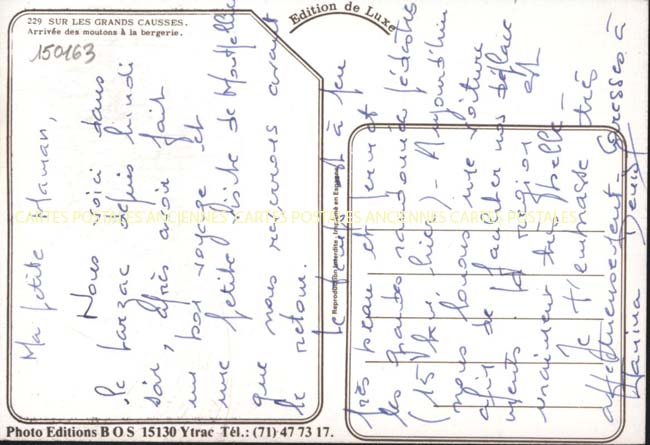 229 SUR LES GRANDS CAUSSES.
Arrivée des moutons à la bergerie.
150163
Edition de Luxe
Ma petite Maman,
Nous voici dans
le Larzac depuis lundi
soir, après avoir fait
un bon voyage et
une petite visite de Montpellier
que nous reverrons avant
le retour.
Le temps est à peu
très beau et permet
les grandes randonnées pédestres
(15 km hier) - Aujourd'hui
nous louons une voiture
afin de faciliter nos déplace
ments. La région est
vraiment très belle.
Je t'embrasse très
affectueusement. Caresses à
Denis
Reproduction interdite, Imprimé en Espagne
CARTES POSTALES ANCIENNES CARTES POSTALES ANCIENNES CARTES POSTALES
Photo Editions B O S 15130 Ytrac Tél.: (71) 47 73 17.